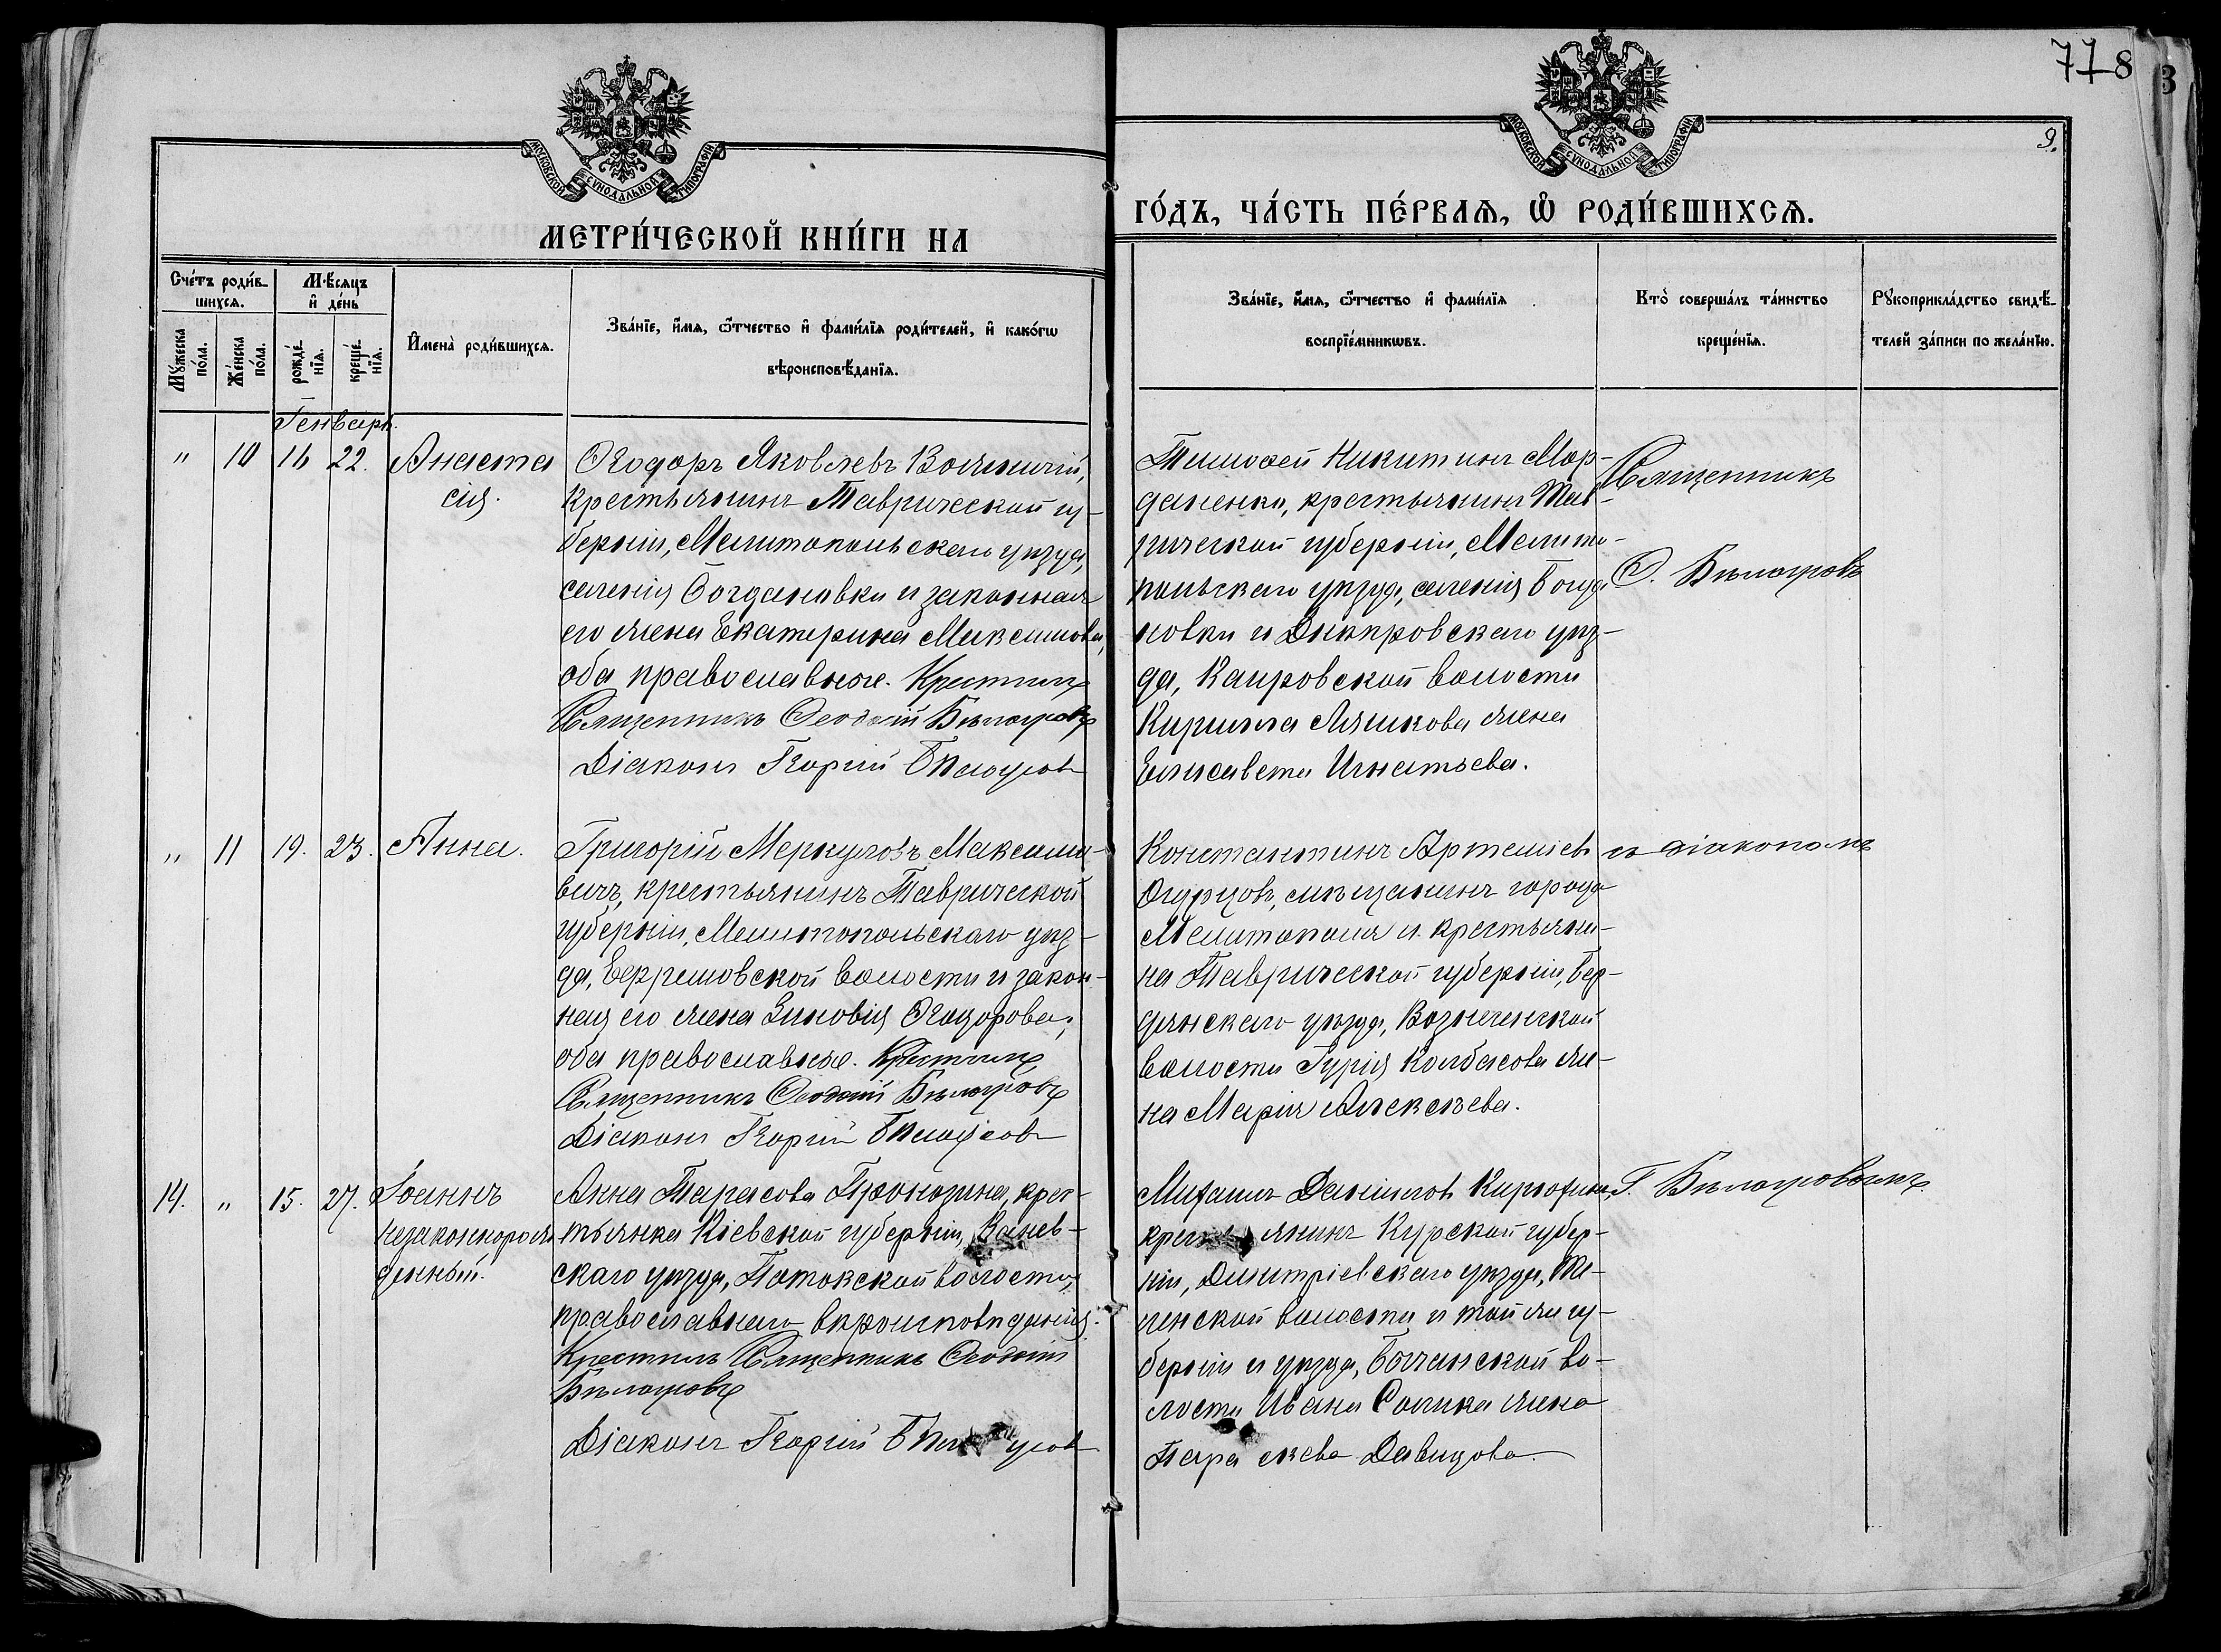 778
9.
МОСКОВСКОЙ СУНОДАЛЬНОЙ ТИПОГРАФІИ
МОСКОВСКОЙ СУНОДАЛЬНОЙ ТИПОГРАФІИ
МЕТРИ́ЧЕСКОЙ КНИ́ГИ НА
ГО́ДЪ, ЧА́СТЬ ПЕ́РВАѦ, Ѽ РОДИ́ВШИХСѦ.
Сче́тъ роди́в-
шихсѧ.
Мѣ́сяцъ
и҆ де́нь
И҆мена̀ роди́вшихсѧ.
Зва́нїе, и҆́мѧ, ѻ҆́тчество и҆ фами́лїѧ роди́телей, и҆ како́гѡ
вѣроисповѣ́данїѧ.
Мꙋ́жеска
по́ла.
Же́нска
по́ла.
рожде́-
нїѧ.
креще́-
нїѧ.
Зва́нїе, и҆́мѧ, ѻ҆́тчество и҆ фами́лїѧ
воспрїе́мникѡвъ.
Кто̀ соверша́лъ та́инство
креще́нїѧ.
Рꙋкоприкла́дство свидѣ́-
телей за́писи по жела́нїю.
Генварь.
" 10 16 22. Анаста
сія.
Ѳеодоръ Яковлевъ
крестьянинъ Таврической гу-
берніи, Мелитопольскаго уѣзда,
селенія Богдановки и законная
его жена Екатерина Максимова,
оба православные. Крестилъ
Священникъ Ѳеодосій Бѣлоусовъ
Діаконъ Георгій Бѣлоусовъ
Тимоѳей Никитинъ Мор-
даненко, крестьянинъ Тав-
рической губерніи, Мелито-
польскаго уѣзда, селенія Богда
новки и Днѣпровскаго уѣз-
да, Каировской волости
Кирилла Ляшкова жена
Елисавета Игнатьева.
Священникъ
Ѳ. Бѣлоусовъ
" 11 19. 23. Анна.
Григорій Меркуловъ Максимо-
вичъ, крестьянинъ Таврической
губерніи, Мелитопольскаго уѣз-
да, Ефремовской волости и закон-
ная его жена Зиновія Ѳеодорова;
оба православные. Крестилъ
Священникъ Ѳеодосій Бѣлоусовъ
Діаконъ Георгій Бѣлоусовъ
Константинъ Артеміевъ
Огурцовъ, мѣщанинъ города
Мелитополя и крестьяни-
на Таврической губерніи, Бер-
дянскаго уѣзда, Вознесенской
волости Гурія Колбасова же-
на Марія Алексѣева.
съ діакономъ
14. " 15. 27. Іоаннъ
незаконнорож
денный.
Анна Тарасова Пронозина, крес-
тьянка Кіевской губерніи, Канев-
скаго уѣзда, Потокской волости,
православнаго вѣроисповѣданія.
Крестилъ Священникъ Ѳеодосій
Бѣлоусовъ
Діаконъ Георгій Бѣлоусовъ
Михаилъ Даніиловъ
крестьянинъ Курской губер-
ніи, Димитріевскаго уѣзда,
волости и той же гу-
берніи и уѣзда, волости Ивана жена
Параскева Давидова.
Г. Бѣлоусовымъ.